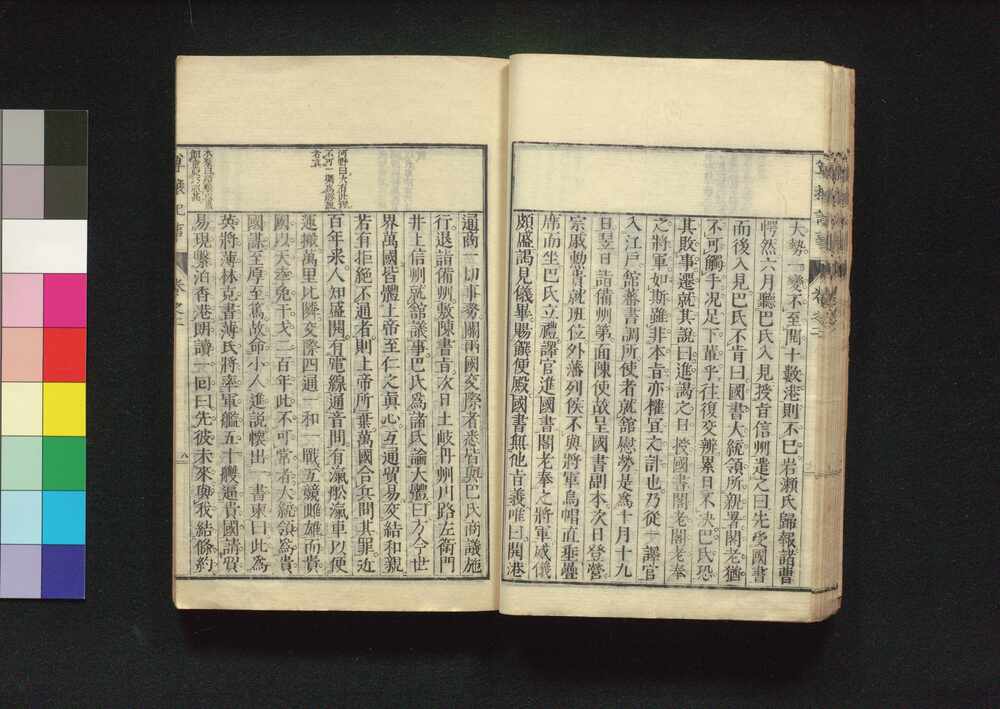 大勢一變不至開十數港則不已岩瀨氏歸報諸曹
愕然六月聽巴氏入見授旨信州遣之曰先受國書
而後入見巴氏不肯曰國書大統領所親署閣老猶
不可觸手况足下輩乎往復交辨累日不决巴氏恐
其敗事遷就其說曰進謁之日授國書閣老閣老奉
之將軍如斯雖非本旨亦權宜之計也乃從一譯官
入江戶館蕃書調所使者就館慰勞是爲十月十九
日翌日詣備州第面陳使故呈國書副本次日登營
宗戚勳舊就班位外藩列侯不與將軍烏帽直垂疊
席而坐巴氏立禮譯官進國書閣老奉之將軍威儀
頗盛謁見儀畢賜饌便殿國書無他旨義唯曰開港
通商一切事務關兩國交際者悉皆與巴氏商議施
行退詣備州敷陳書旨次日土岐丹州川路左衛門
井上信州就館議事巴氏爲諸氏論大體曰方今世
界萬國皆體上帝至仁之眞心互通貿易交結和親
若有拒絕不通者則上帝所棄萬國合兵問其罪近
百年來人知盛開有電線通音問有滊舩滊車以便
運搬萬里比隣交際四通一和一戰互競雌雄而貴
國以天幸免干戈二百年此不可常者大統領爲貴
國謀至厚至篤故命小人進說懷出一書柬曰此爲
英將薄林克書薄氏將率軍艦五十艘逼貴國請貿
易現繫泊香港朗讀一回曰先彼未來與我結條約
河野曰大有此理